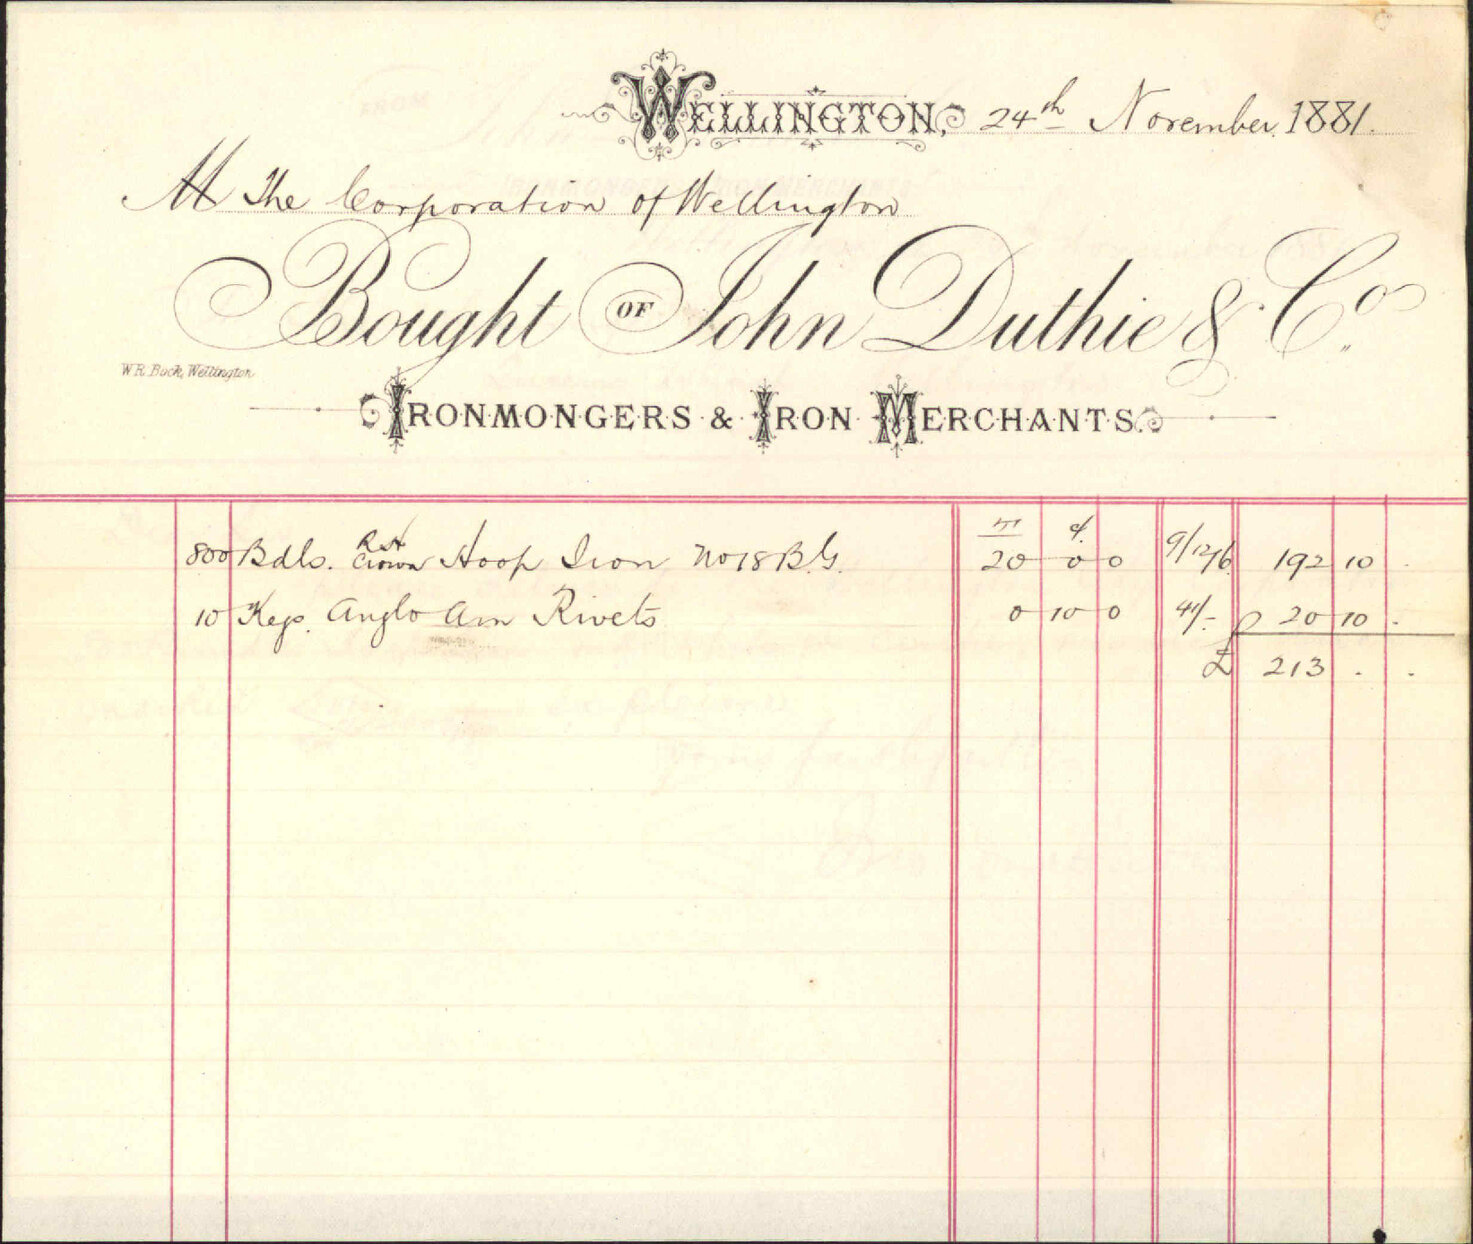 WELLINGTON, 24th November 1881.
M The Corporation of Wellington
Bought OF John Duthie & Co.
W.R. Bock, Wellington
IRONMONGERS & IRON MERCHANTS.
800 Bdls. Crown Hoop Iron No 18 B.G. 20 0 0 9/12/6 192 10 .
10 Kegs. Anglo Am Rivets 0 10 0 41/- 20 10 .
£ 213 . .